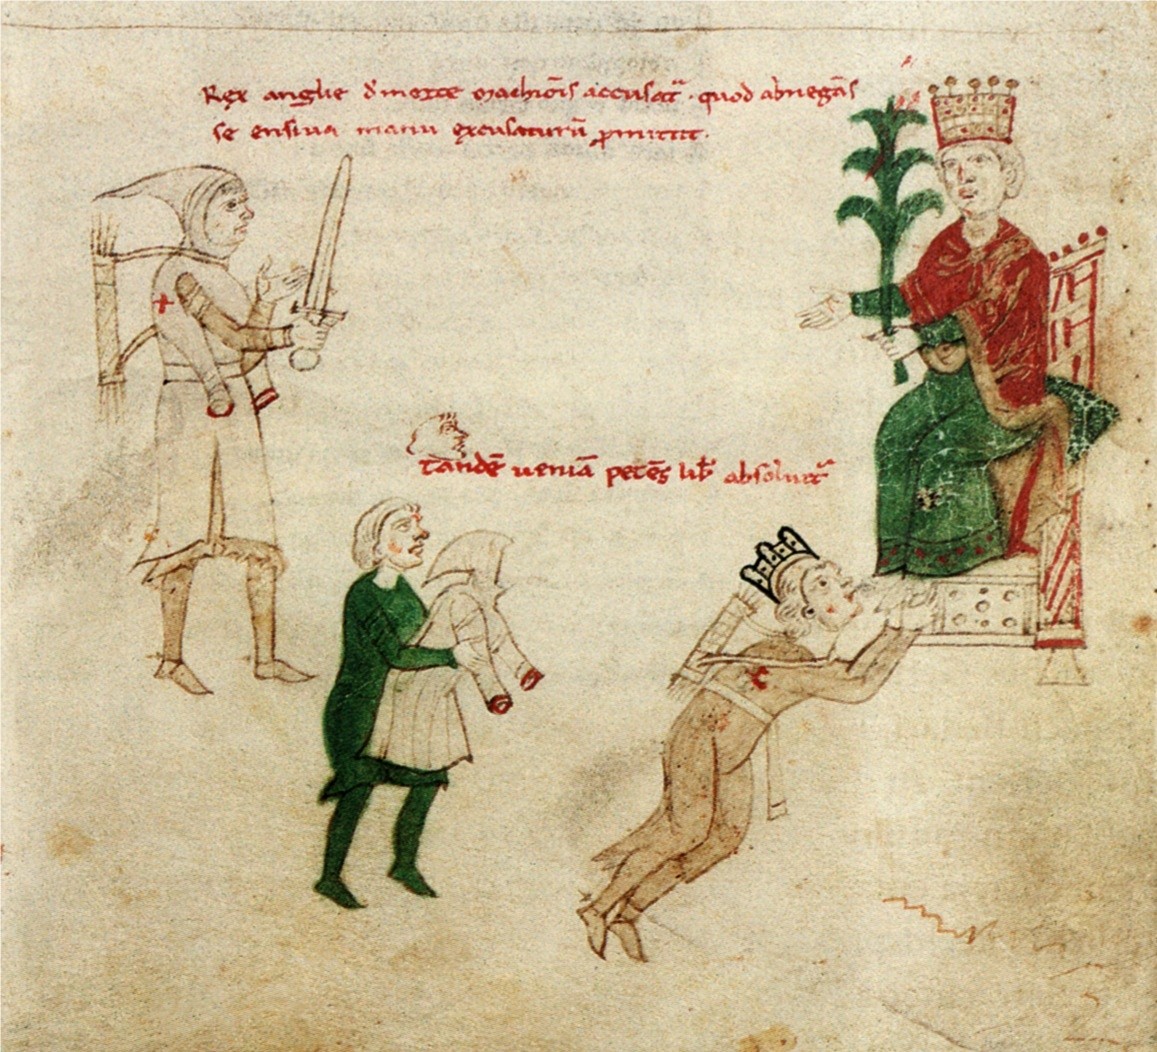 Rex anglie d' morte marchiõis accusat᷑ · quod abnegãs
se ensiua manu excusaturũ ꝓmittit.
tandẽ ueniã petẽs lib̃ absoluit᷑